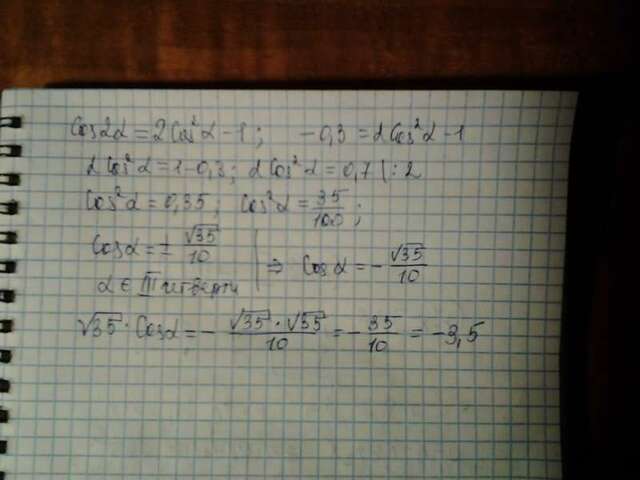 Cos2α = 2Cos²α - 1; -0,3 = 2Cos²α - 1
2Cos²α = 1 - 0,3; 2Cos²α = 0,7 | : 2
Cos²α = 0,35; Cos²α = 35/100;
Cosα = ± √35/10
α ∈ III четверти
⇒ Cosα = - √35/10
√35 · Cosα = - √35 · √35/10 = - 35/10 = -3,5